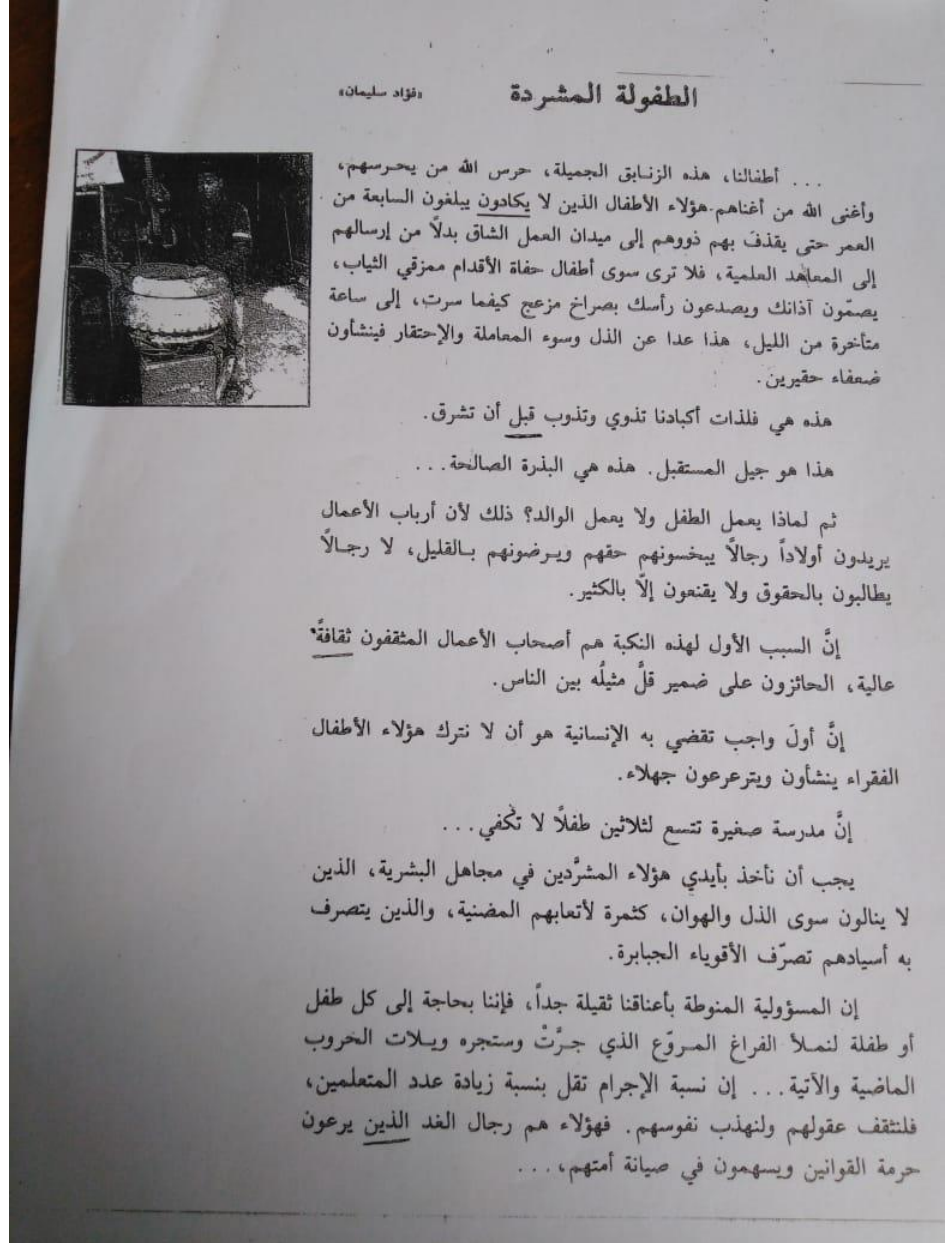 الطفولة المشردة «فؤاد سليمان»
... أطفالنا، هذه الزنابق الجميلة، حرس الله من يحرسهم،
وأغنى الله من أغناهم. هؤلاء الأطفال الذين لا يكادون يبلغون السابعة من
العمر حتى يقذفَ بهم ذووهم إلى ميدان العمل الشاق بدلًا من إرسالهم
إلى المعاهد العلمية، فلا ترى سوى أطفال حفاة الأقدام ممزقي الثياب،
يصمّون آذانك ويصدعون رأسك بصراخ مزعج كيفما سرت، إلى ساعة
متأخرة من الليل، هذا عدا عن الذل وسوء المعاملة والإحتقار فينشأون
ضعفاء حقيرين.
هذه هي فلذات أكبادنا تذوي وتذوب قبل أن تشرق.
هذا هو جيل المستقبل. هذه هي البذرة الصالحة...
ثم لماذا يعمل الطفل ولا يعمل الوالد؟ ذلك لأن أرباب الأعمال
يريدون أولاداً رجالًا يبخسونهم حقهم ويرضونهم بالقليل، لا رجالًا
يطالبون بالحقوق ولا يقنعون إلّا بالكثير.
إنَّ السبب الأول لهذه النكبة هم أصحاب الأعمال المثقفون ثقافةً
عالية، الحائزون على ضمير قلَّ مثيلُه بين الناس.
إنَّ أولَ واجب تقضي به الإنسانية هو أن لا نترك هؤلاء الأطفال
الفقراء ينشأون ويترعرعون جهلاء.
إنَّ مدرسة صغيرة تتسع لثلاثين طفلًا لا تكفي...
يجب أن نأخذ بأيدي هؤلاء المشرَّدين في مجاهل البشرية، الذين
لا ينالون سوى الذل والهوان، كثمرة لأتعابهم المضنية، والذين يتصرف
به أسيادهم تصرّف الأقوياء الجبابرة.
إن المسؤولية المنوطة بأعناقنا ثقيلة جداً، فإننا بحاجة إلى كل طفل
أو طفلة لنملأ الفراغ المروّع الذي جرَّتْ وستجره ويلات الحروب
الماضية والآتية... إن نسبة الإجرام تقل بنسبة زيادة عدد المتعلمين،
فلنثقف عقولهم ولنهذب نفوسهم. فهؤلاء هم رجال الغد الذين يرعون
حرمة القوانين ويسهمون في صيانة أمتهم،...